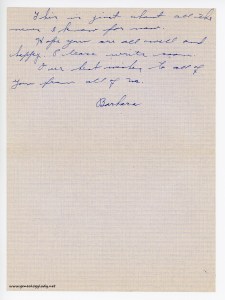 This is just about all the
news I know for now.
Hope you are all well and
happy. Please write soon.
Our best wishes to all of
you from all of us.
Barbara